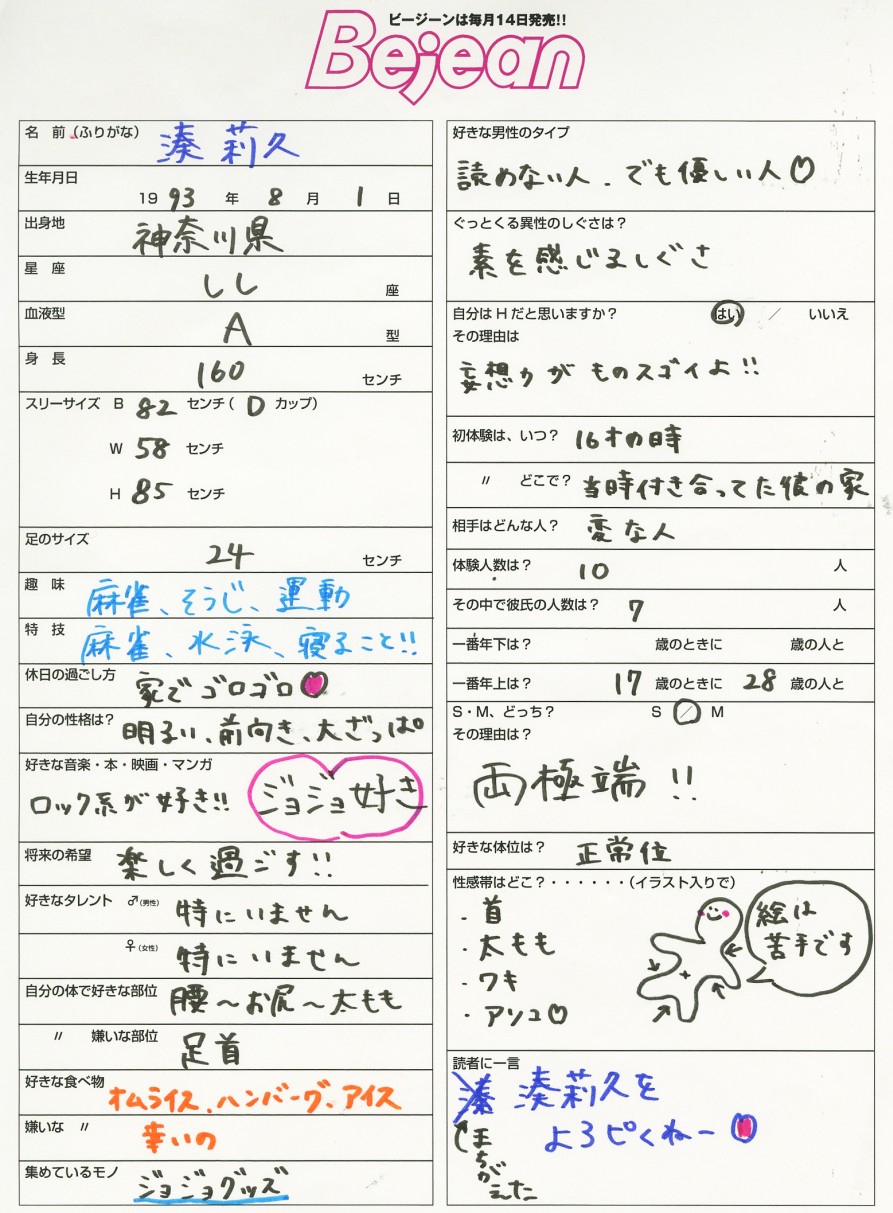 ビージーンは毎月14日発売!!
Bejean
名　前（ふりがな） 湊 莉久
生年月日
19 93 年 8 月 1 日
出身地 神奈川県
星　座 しし 座
血液型 A 型
身　長 160 センチ
スリーサイズ B 82 センチ( D カップ)
W 58 センチ
H 85 センチ
足のサイズ 24 センチ
趣　味 麻雀、そうじ、運動
特　技 麻雀、水泳、寝ること!!
休日の過ごし方 家でゴロゴロ♥
自分の性格は? 明るい、前向き、大ざっぱ
好きな音楽・本・映画・マンガ
ロック系が好き!! ジョジョ好き
将来の希望 楽しく過ごす!!
好きなタレント ♂(男性) 特にいません
♀(女性) 特にいません
自分の体で好きな部位 腰〜お尻〜太もも
〃 嫌いな部位 足首
好きな食べ物 オムライス、ハンバーグ、アイス
嫌いな 〃 辛いの
集めているモノ ジョジョグッズ
好きな男性のタイプ
読めない人．でも優しい人♡
ぐっとくる異性のしぐさは?
素を感じるしぐさ
自分はHだと思いますか? はい ／ いいえ
その理由は
妄想力がものスゴイよ!!
初体験は、いつ? 16才の時
〃 どこで? 当時付き合ってた彼の家
相手はどんな人? 変な人
体験人数は? 10 人
その中で彼氏の人数は? 7 人
一番年下は? 歳のときに 歳の人と
一番年上は? 17 歳のときに 28 歳の人と
S・M、どっち? S ／ M
その理由は?
両極端!!
好きな体位は? 正常位
性感帯はどこ?・・・・・・(イラスト入りで)
・首
・太もも
・ワキ
・アソコ♡
絵は
苦手です
読者に一言
湊 湊莉久を
よろピくねー♥
まちがえた